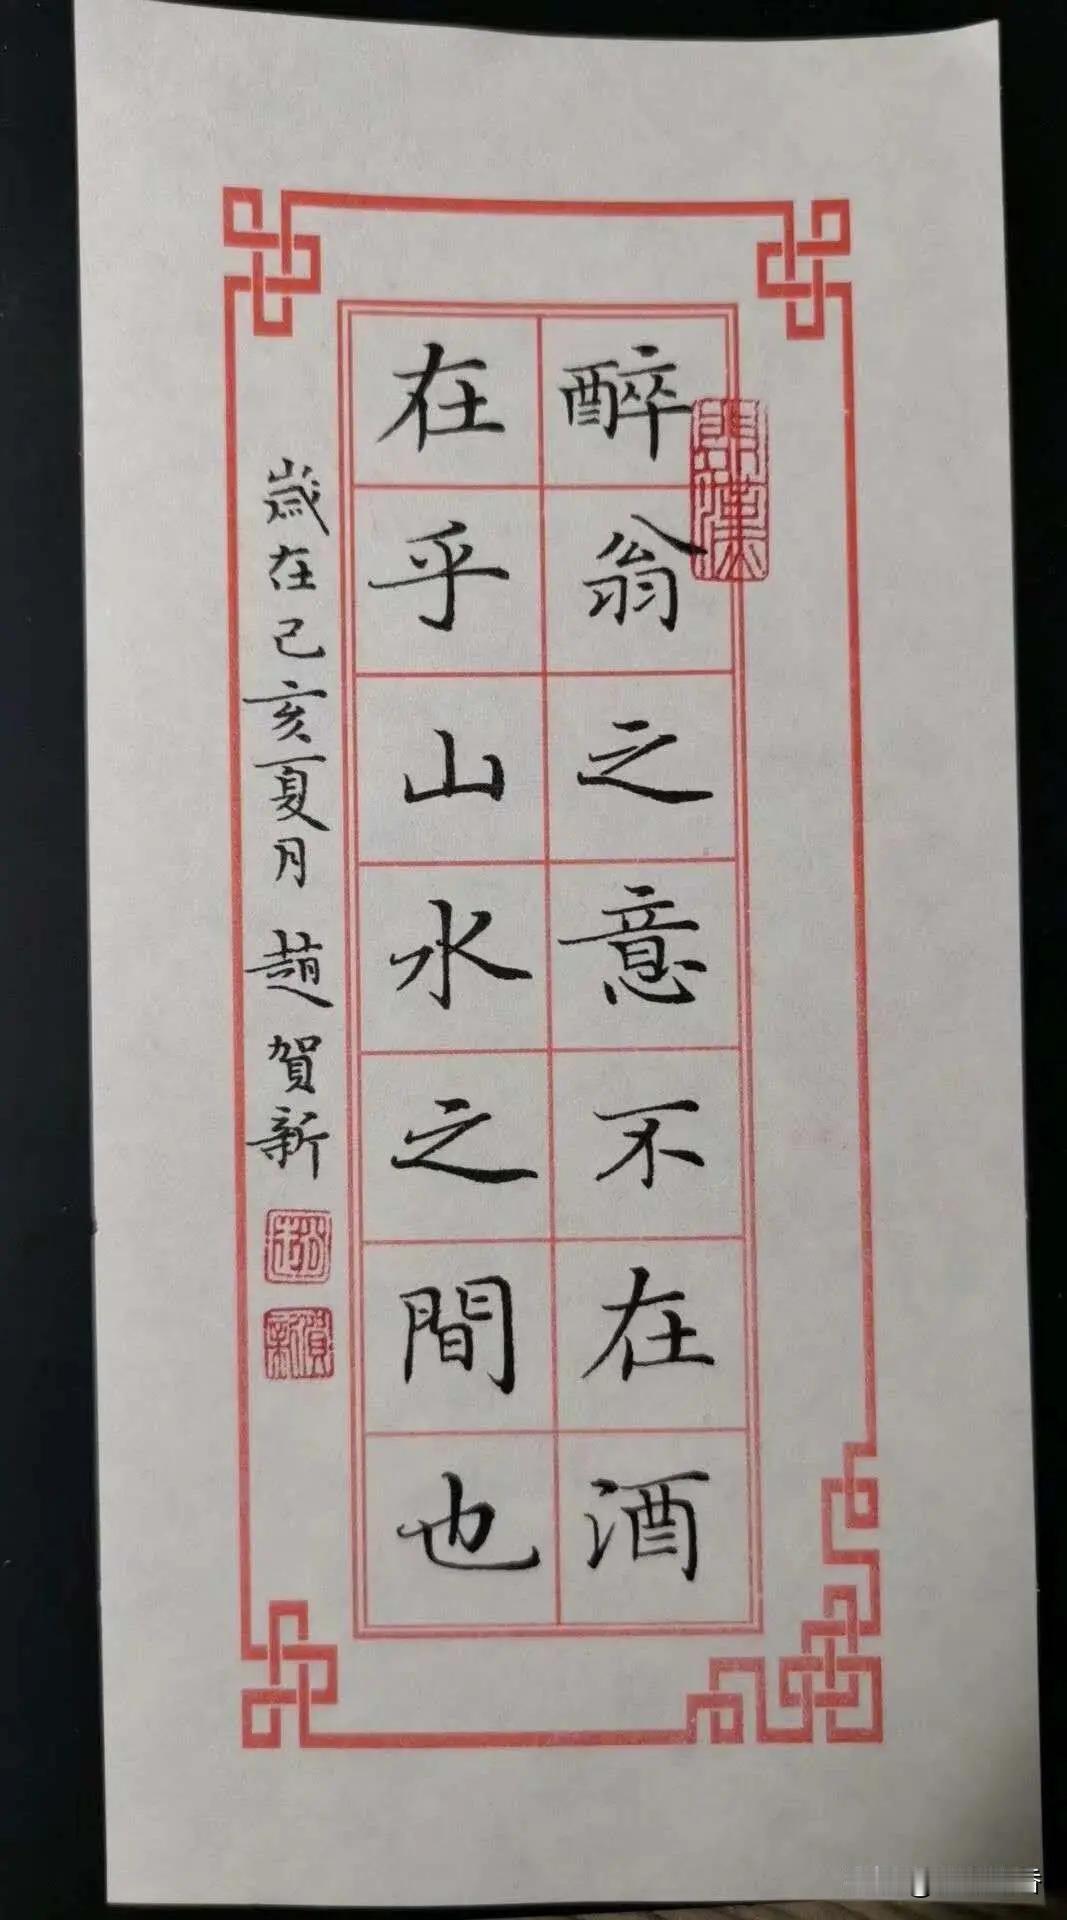 醉翁之意不在酒
在乎山水之間也
歲在己亥夏月 趙賀新
趙
賀新